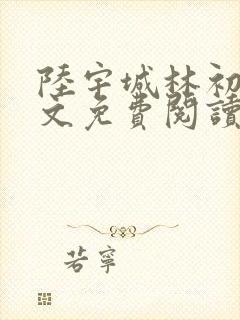 陸宇城林初
文免費閱讀
若寧